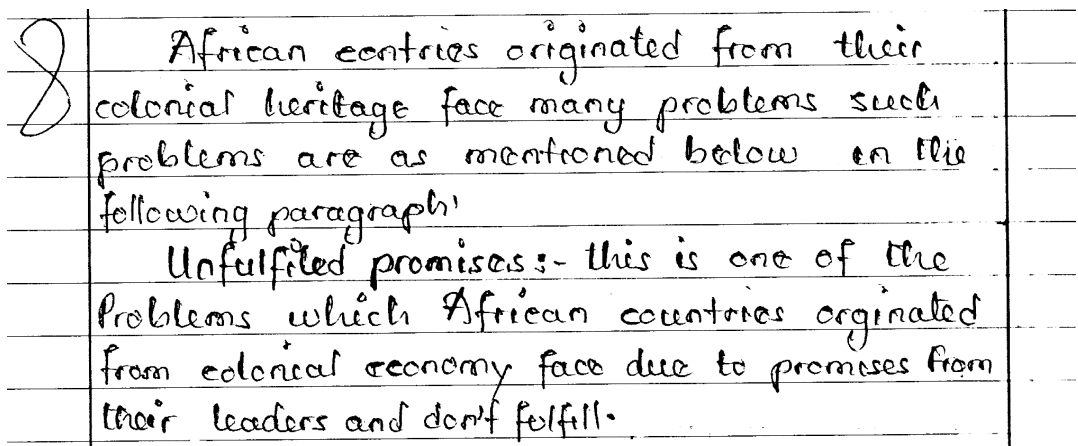 8 African contries originated from their
colonial heritage face many problems such
problems are as mentioned below in the
following paragraph'
Unfulfiled promises:- this is one of the
Problems which African countries orginated
from colonical economy face due to promises from
their leaders and don't fulfill.